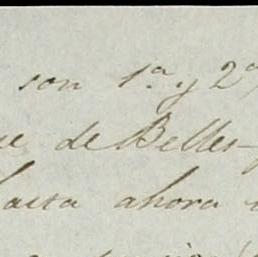 son 1ª y 2ª
que de Belles-
hasta ahora